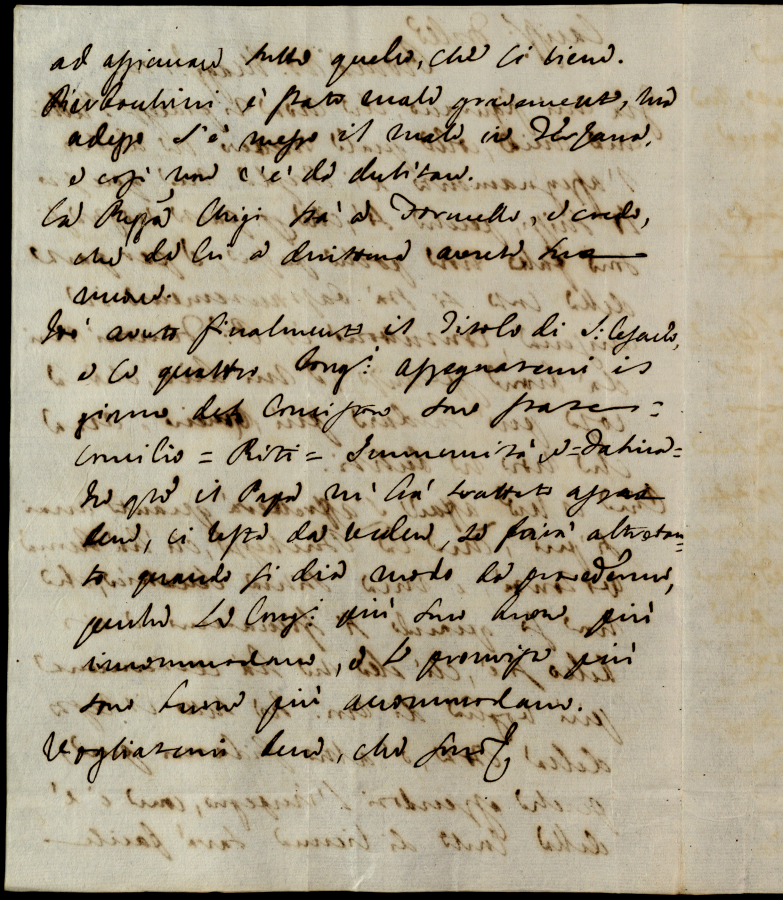 ad appianare tutto quello, che ci viene.
è stato male gravemente, ma
adesso s'è messo il male in
e così non c'è da dubitare.
La Chigi stà a Formello, e credo,
che da lei a dirittura avrete sue
nuove.
Hò avuto finalmente il Titolo di S: Cesareo,
e le quattro Cong.i assegnatemi il
giorno del sono state =
Concilio = Riti = Immunità, e =
Se quà il Papa m'hà trattato assai
bene, ci resta da vedere, se farà altretan=
to quando si dia modo da provedermi,
perche Le Cong.i più sono buone, più
incommodano, e le provviste più
sono buone più accommodano.
Vogliatemi bene, che sono